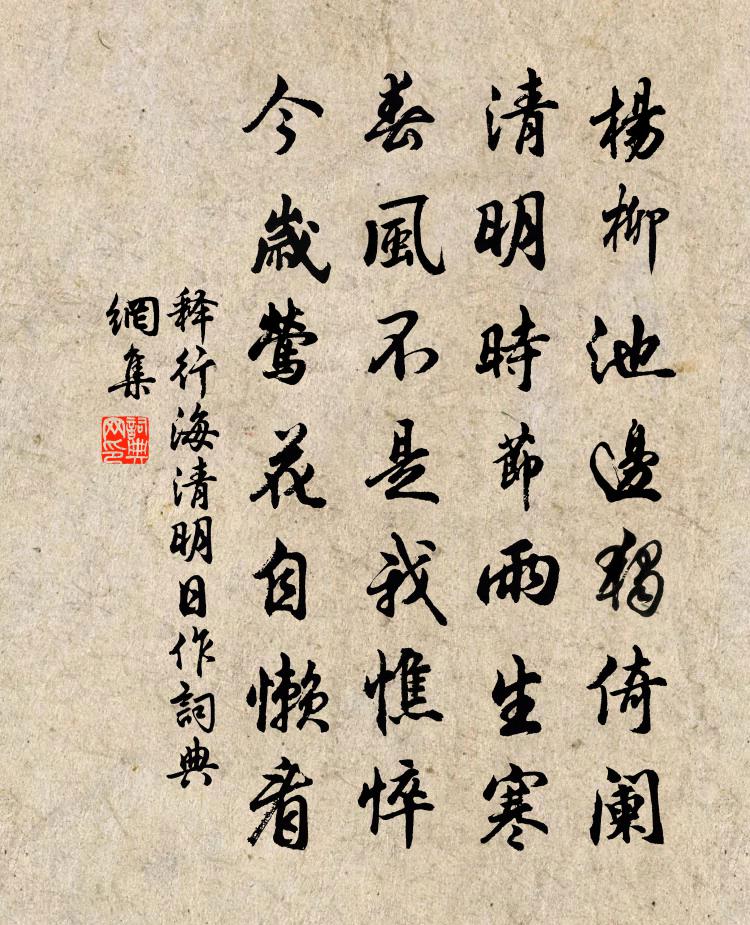 楊柳池邊獨倚阑
清明時節雨生寒
春風不是我憔悴
今歲鶯花自懒看
释行海清明日作詞典
網集
詞典
网印